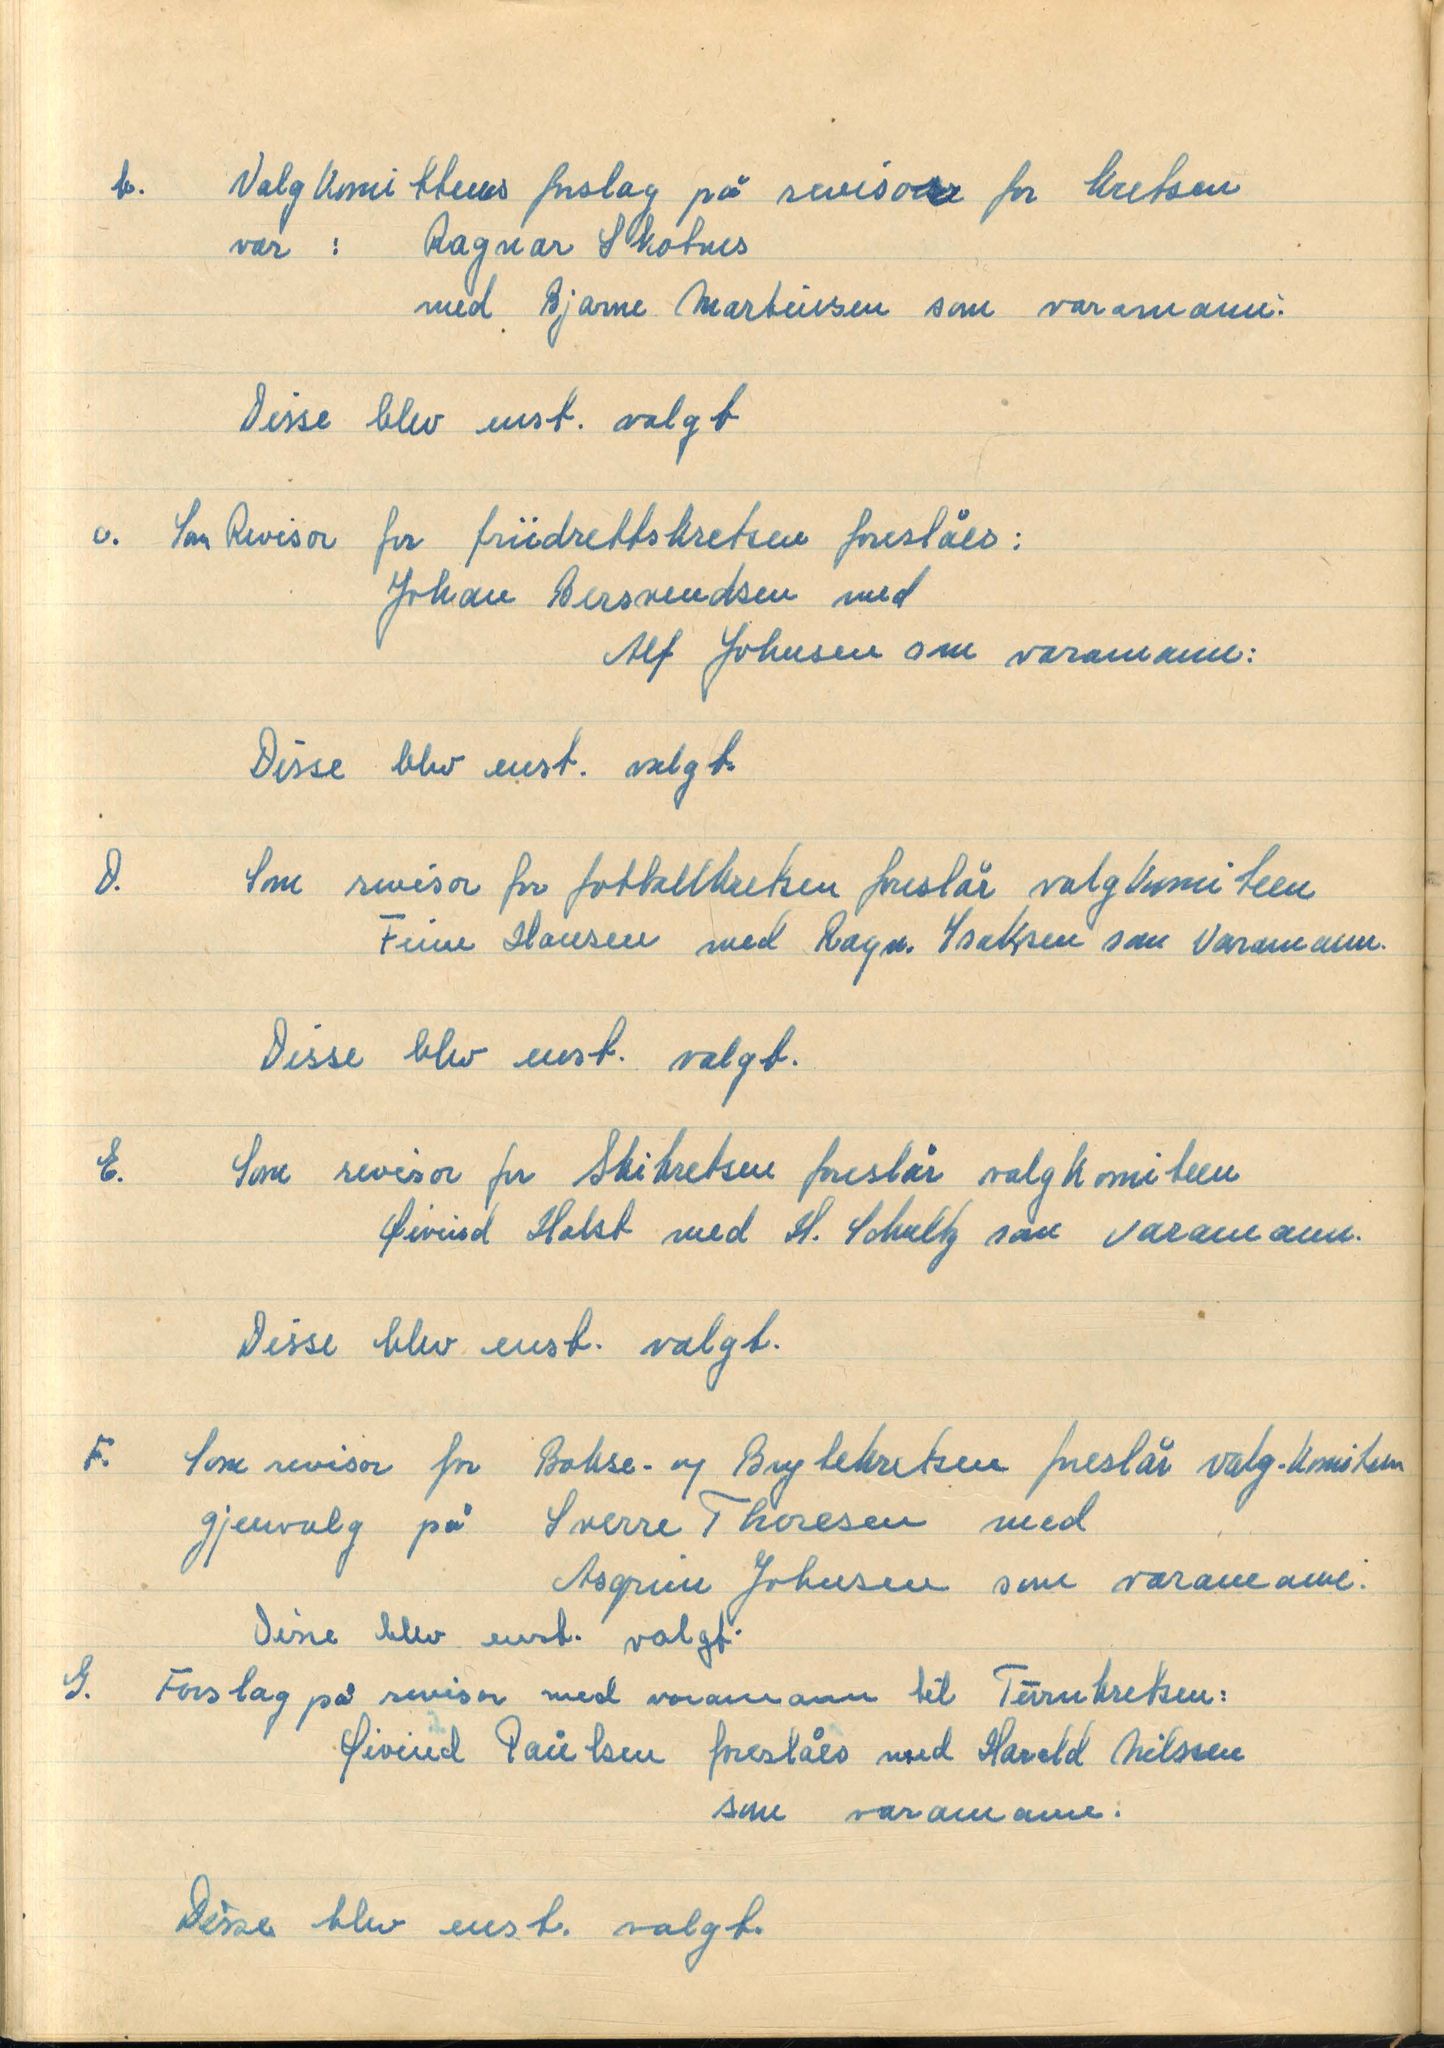 b. Valgkomitteens forslag på revisor for kretsen
var : Ragnar Skotnes
med Bjarne Martinsen som varamann.
Disse blev enst. valgt
c. Som Revisor for friidrettskretsen foreslåes:
Johan Bersvendsen med
Alf Johnsen som varamann:
Disse blev enst. valgt.
D. Som revisor for fotballkretsen foreslår valgkomiteen
Finn Hansen med Ragn. Isaksen som Varamann.
Disse blev enst. valgt.
E. Som revisor for Skikretsen foreslår valgkomiteen
Øivind Holst med H. Schultz som varamann.
Disse blev enst. valgt.
F. Som revisor for Bokse- og Brytekretsen foreslår valg-komiteen
gjenvalg på Sverre Thoresen med
Asgrim Johnsen som varamann.
Disse blev enst. valgt.
G. Forslag på revisor med varamann til Turnkretsen:
Øivind Paulsen foreslåes med Harald Nilssen
som varamann.
Disse blev enst. valgt.